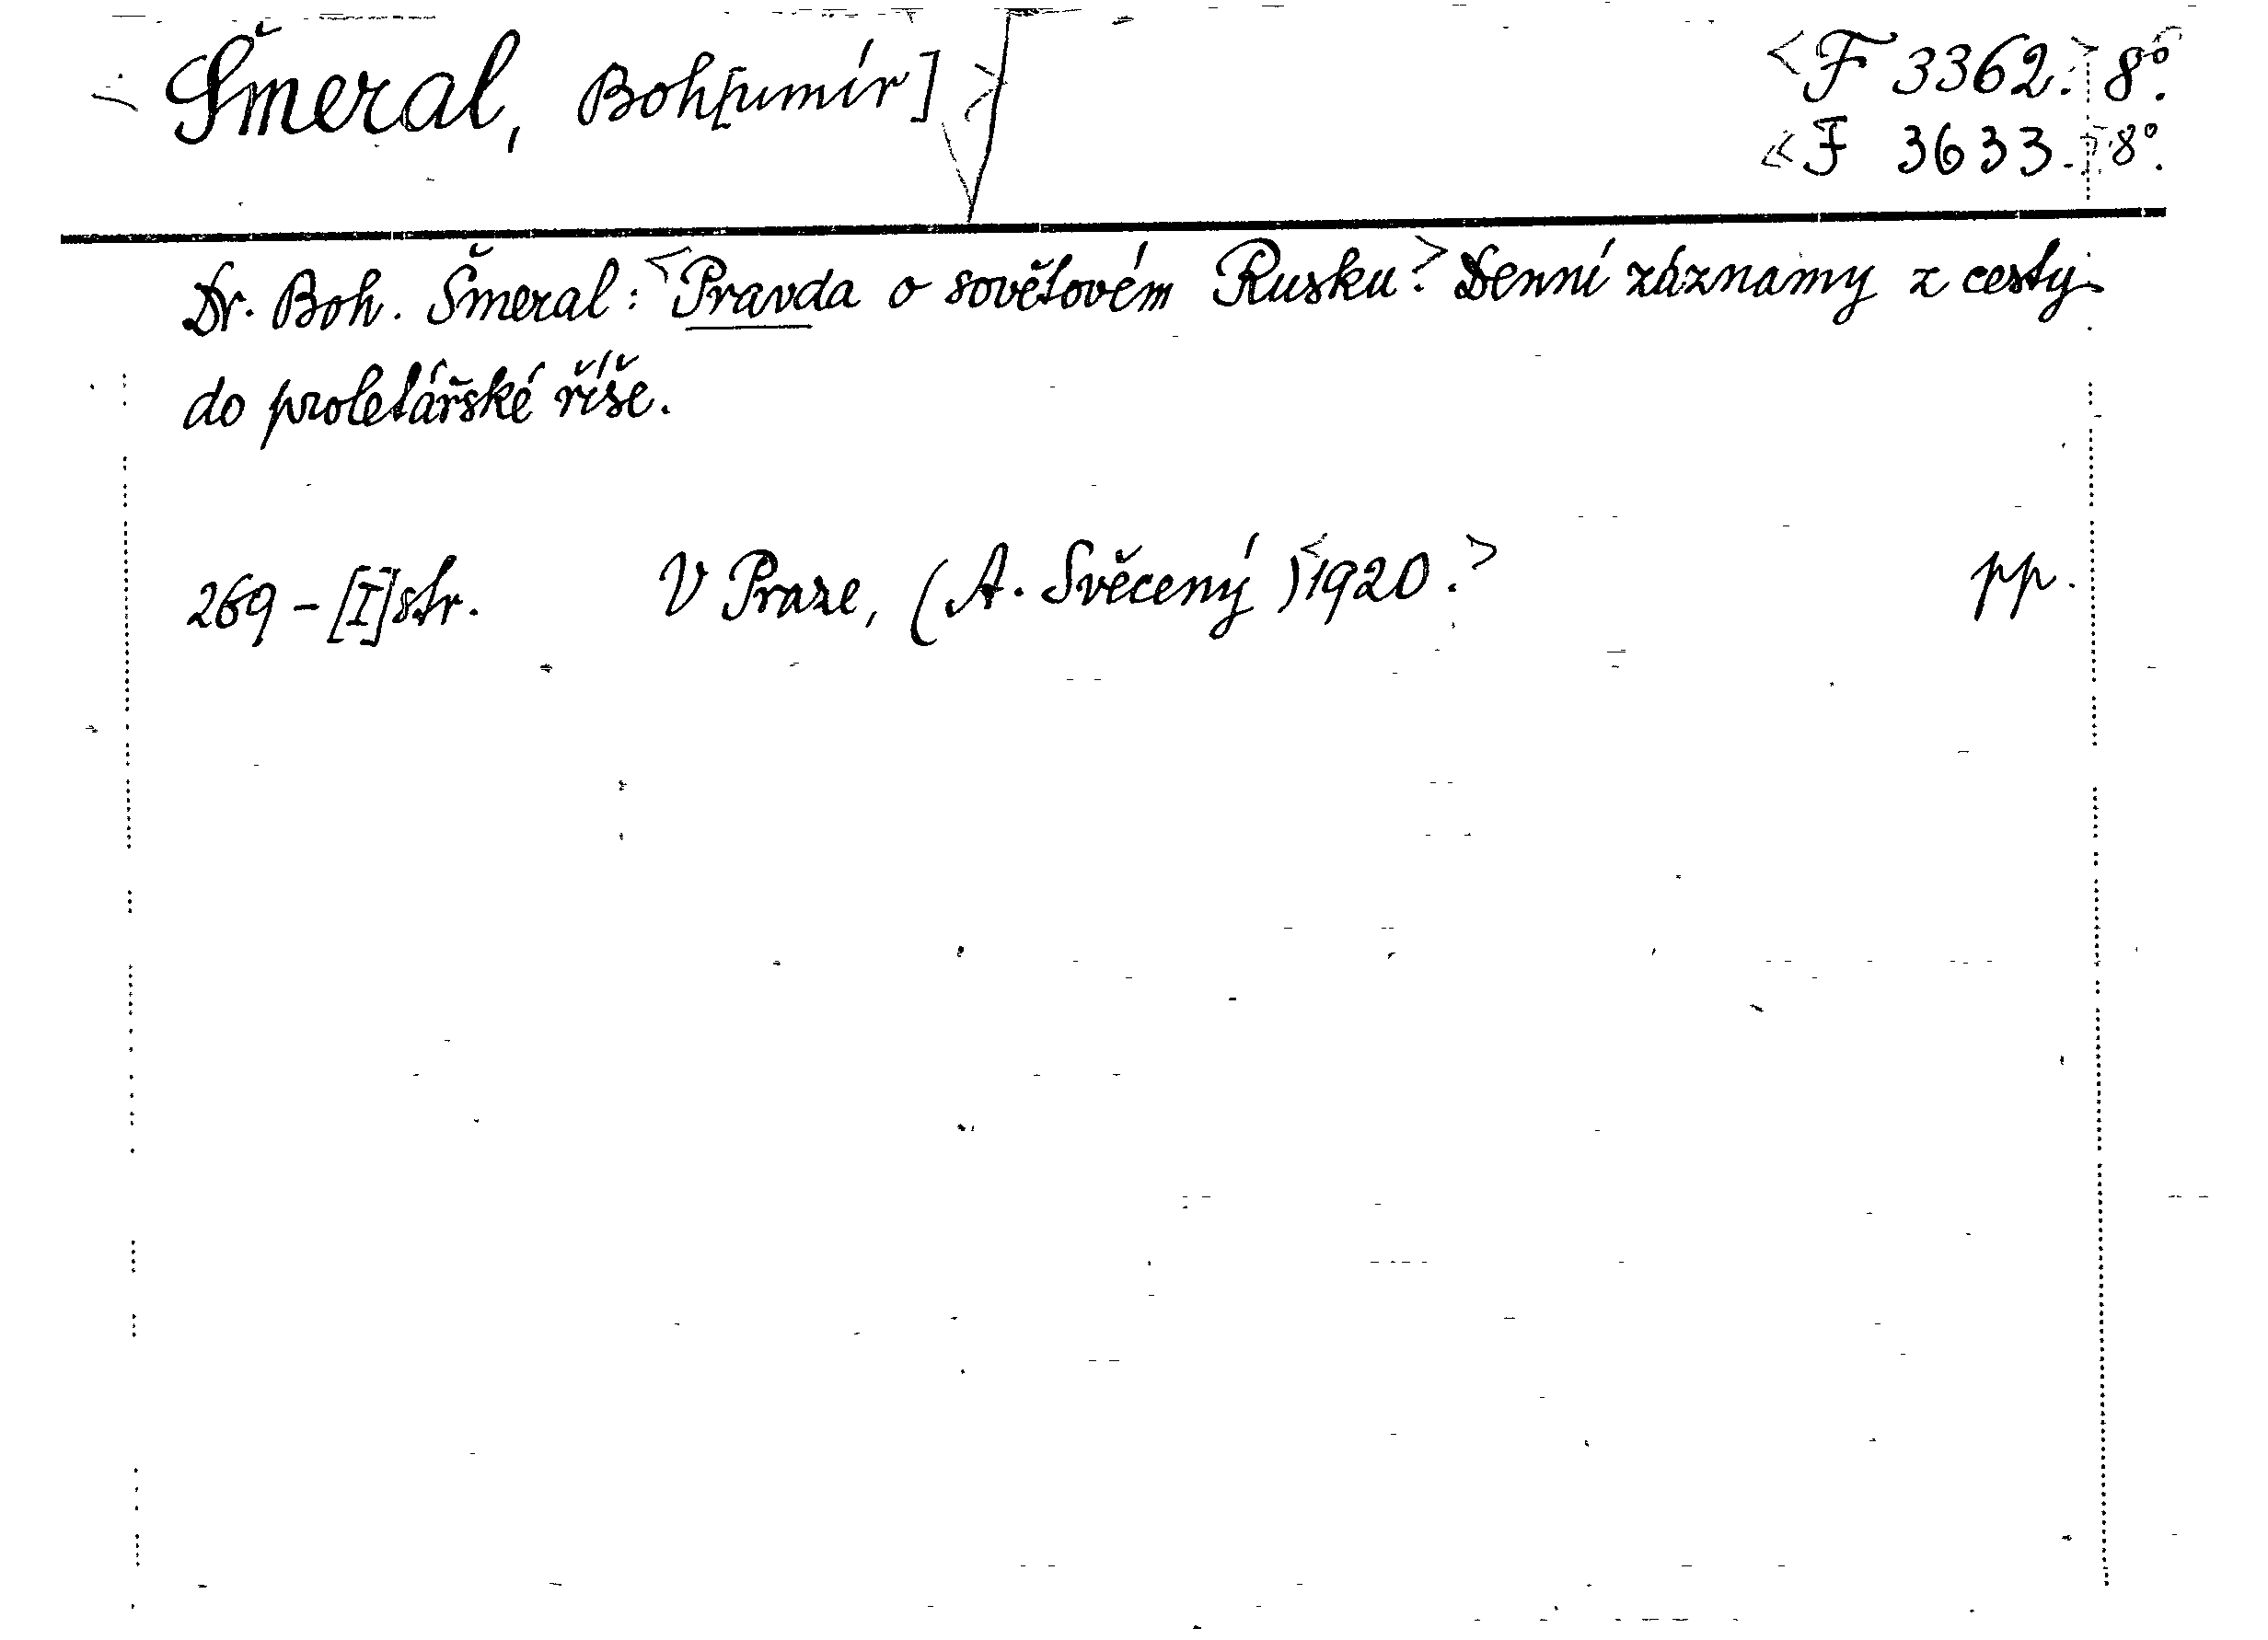 Šmeral, Boh[umír]
<F 3362.> 8°.
<F 3633.> 8°.
Dr. Boh. Šmeral: <Pravda o sovětovém Rusku.> Denní záznamy z cesty
do proletářské říše.
269-[I]str. V Praze, (A. Svěcený) <1920.> pp.